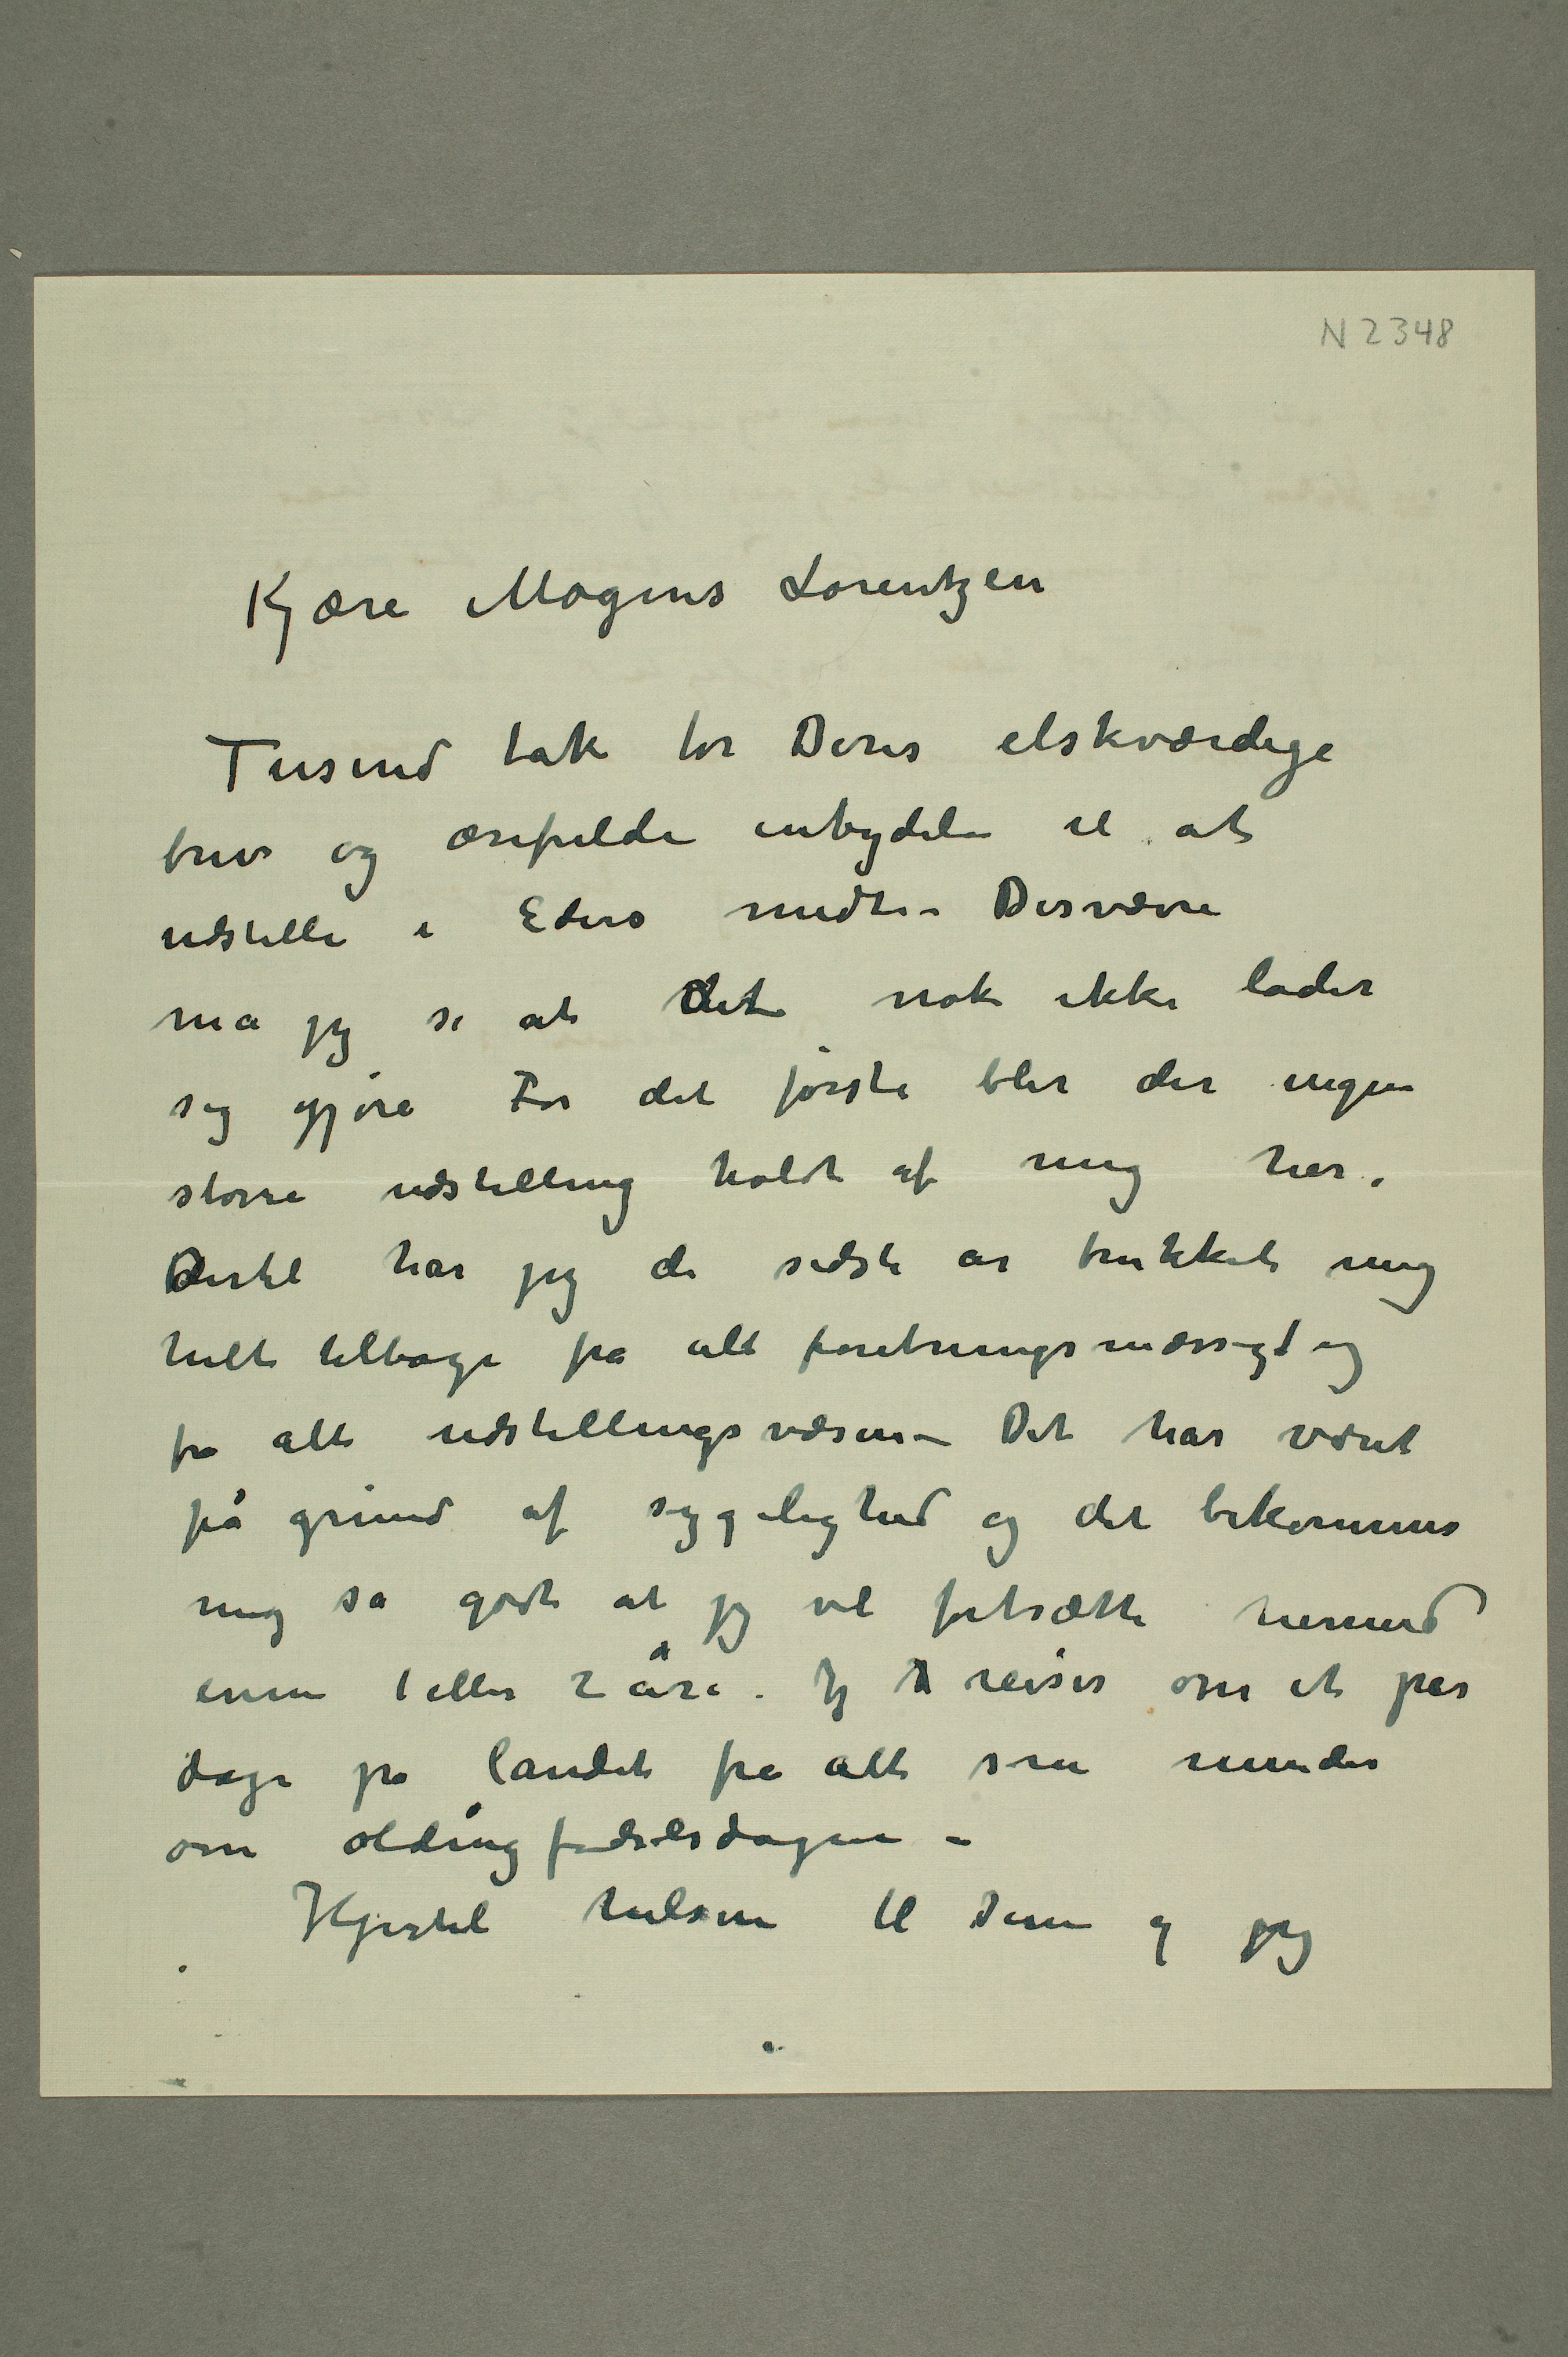 N 2348
Kjære Mogens Lorentzen
Tusend tak for Deres elskværdige
brev og ærefulde inbydelse til at
udstille i Eders midte – Desværre
må jeg se at det nok ikke lader
sig gjøre For det første blir der ingen
større udstilling holdt af mig her.
Dertil har jeg de sidste år trukket mig
helt tilbage fra alt forretningsmæssigt og
fra alt udstillingsvæsen – Det har været
på grund af sygelighed og det bekommer
mig så godt at jeg vil fortsætte hermed
ennu 1 eller 2 åre. Jeg reiser om et par
dage på landet fra alt som minder
om oldingfødselsdagen –
Hjertelig hilsen til Dem og jeg